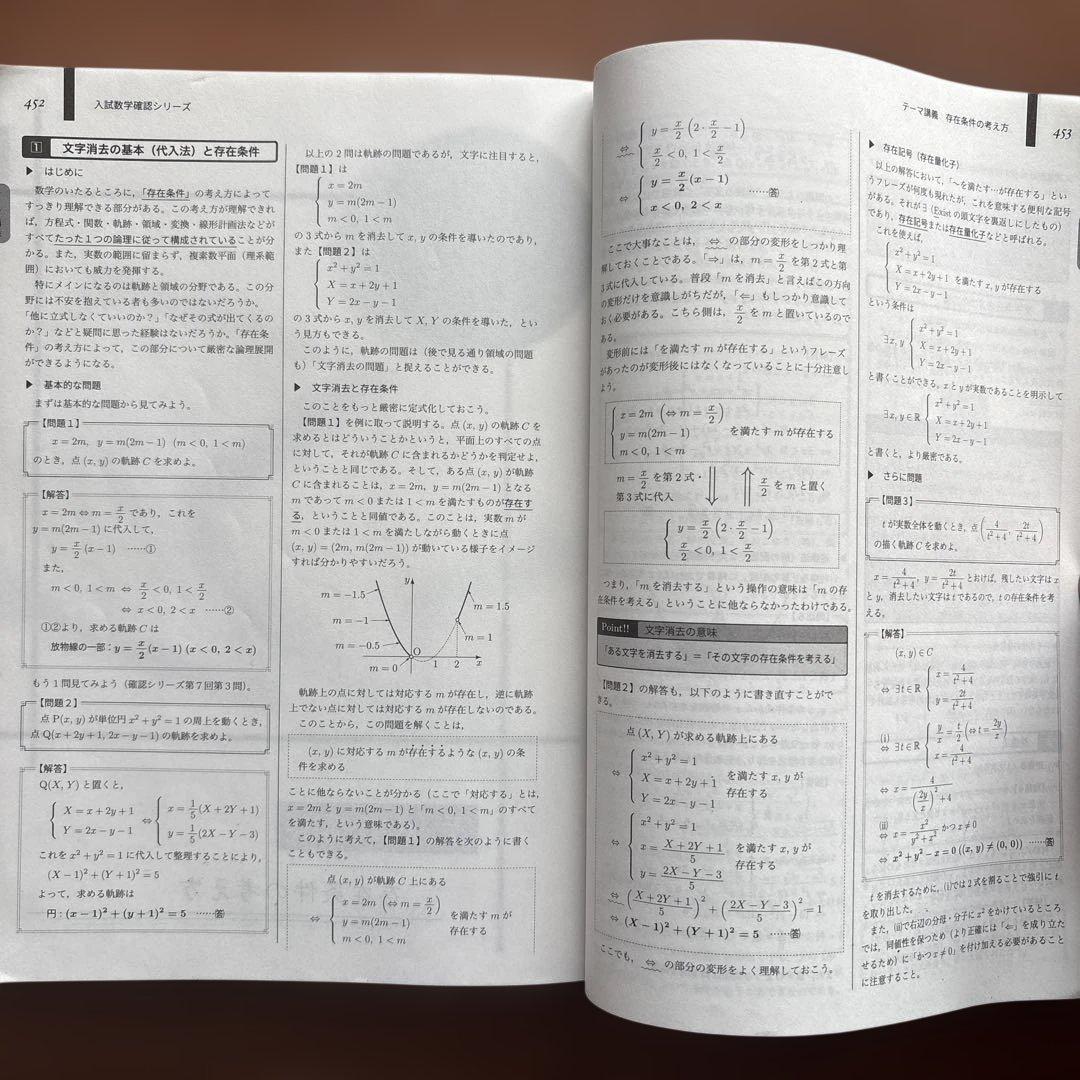 452
入試数学確認シリーズ
1 文字消去の基本（代入法）と存在条件
▶ はじめに
数学のいたるところに，「存在条件」の考え方によって
すっきり理解できる部分がある。この考え方が理解できれ
ば，方程式・関数・軌跡・領域・変換・線形計画法などが
すべてたった１つの論理に従って構成されていることが分
かる。また，実数の範囲に留まらず，複素数平面（理系範
囲）においても威力を発揮する。
特にメインになるのは軌跡と領域の分野である。この分
野には不安を抱えている者も多いのではないだろうか。
「他に立式しなくていいのか？」「なぜその式が出てくるの
か？」などと疑問に思った経験はないだろうか。「存在条
件」の考え方によって，この部分について厳密な論理展開
ができるようになる。
▶ 基本的な問題
まずは基本的な問題から見てみよう。
【問題１】
x＝2m，y＝m(2m－1)（m＜0，1＜m）
のとき，点(x, y)の軌跡Cを求めよ。
【解答】
x＝2m⇔m＝x/2 であり，これを
y＝m(2m－1)に代入して，
y＝x/2(x－1) ……①
また，
m＜0，1＜m ⇔ x/2＜0，1＜x/2
⇔ x＜0，2＜x ……②
①②より，求める軌跡Cは
放物線の一部：y＝x/2(x－1)（x＜0，2＜x）
もう１問見てみよう（確認シリーズ第７回第３問）。
【問題２】
点P(x, y)が単位円x²＋y²＝1の周上を動くとき，
点Q(x＋2y＋1, 2x－y－1)の軌跡を求めよ。
【解答】
Q(X, Y)と置くと，
X＝x＋2y＋1 ⇔ x＝1/5(X＋2Y＋1)
Y＝2x－y－1 y＝1/5(2X－Y－3)
これをx²＋y²＝1に代入して整理することにより，
(X－1)²＋(Y＋1)²＝5
よって，求める軌跡は
円：(x－1)²＋(y＋1)²＝5 ……答
以上の２問は軌跡の問題であるが，文字に注目すると，
【問題１】は
x＝2m
y＝m(2m－1)
m＜0，1＜m
の３式からmを消去してx, yの条件を導いたのであり，
また【問題２】は
x²＋y²＝1
X＝x＋2y＋1
Y＝2x－y－1
の３式からx, yを消去してX, Yの条件を導いた，とい
う見方もできる。
このように，軌跡の問題は（後で見る通り領域の問題
も）「文字消去の問題」と捉えることができる。
▶ 文字消去と存在条件
このことをもっと厳密に定式化しておこう。
【問題１】を例に取って説明する。点(x, y)の軌跡Cを
求めるとはどういうことかというと，平面上のすべての点
に対して，それが軌跡Cに含まれるかどうかを判定せよ，
ということと同じである。そして，ある点(x, y)が軌跡
Cに含まれることは，x＝2m，y＝m(2m－1)となる
mであってm＜0または1＜mを満たすものが存在す
る，ということと同値である。このことは，実数mが
m＜0または1＜mを満たしながら動くときに点
(x, y)＝(2m, m(2m－1))が動いている様子をイメージ
すれば分かりやすいだろう。
y
m＝－1.5
m＝1.5
m＝－1
m＝1
m＝－0.5
m＝0
O
2
x
軌跡上の点に対しては対応するmが存在し，逆に軌跡
上でない点に対しては対応するmが存在しないのである。
このことから，この問題を解くことは，
(x, y)に対応するmが存在するような(x, y)の条
件を求める
ことに他ならないことが分かる（ここで「対応する」とは，
x＝2mとy＝m(2m－1)と「m＜0，1＜m」のすべて
を満たす，という意味である）。
このように考えて，【問題１】の解答を次のように書く
こともできる。
点(x, y)が軌跡C上にある
⇔ x＝2m（⇔m＝x/2）
y＝m(2m－1) を満たすmが
m＜0，1＜m 存在する
テーマ講義 存在条件の考え方
453
⇔ y＝x/2(2・x/2－1)
x/2＜0，1＜x/2
⇔ y＝x/2(x－1) ……答
x＜0，2＜x
ここで大事なことは，⇔の部分の変形をしっかり理
解しておくことである。「⇒」は，m＝x/2を第２式と第
３式に代入している。普段「mを消去」と言えばこの方向
の変形だけを意識しがちだが，「⇐」もしっかり意識して
おく必要がある。こちら側は，x/2をmと置いているので
ある。
変形前には「を満たすmが存在する」というフレーズ
があったのが変形後にはなくなっていることに十分注意し
よう。
x＝2m（⇔m＝x/2）
y＝m(2m－1) を満たすmが存在する
m＜0，1＜m
m＝x/2を第２式・
第３式に代入
x/2をmと置く
y＝x/2(2・x/2－1)
x/2＜0，1＜x/2
つまり，「mを消去する」という操作の意味は「mの存
在条件を考える」ということに他ならなかったわけである。
Point!! 文字消去の意味
「ある文字を消去する」＝「その文字の存在条件を考える」
【問題２】の解答も，以下のように書き直すことがで
きる。
点(X, Y)が求める軌跡上にある
⇔ x²＋y²＝1
X＝x＋2y＋1 を満たすx, yが
Y＝2x－y－1 存在する
⇔ x²＋y²＝1
x＝(X＋2Y＋1)/5 を満たすx, yが
y＝(2X－Y－3)/5 存在する
⇔ ((X＋2Y＋1)/5)²＋((2X－Y－3)/5)²＝1
⇔ (X－1)²＋(Y＋1)²＝5 ……答
ここでも，⇔の部分の変形をよく理解しておこう。
▶ 存在記号（存在量化子）
以上の解答において，「〜を満たす…が存在する」とい
うフレーズが何度も現れたが，これを意味する便利な記号
がある。それが∃（Existの頭文字を裏返しにしたもの）
であり，存在記号または存在量化子などと呼ばれる。
これを使えば，
x²＋y²＝1
X＝x＋2y＋1 を満たすx, yが存在する
Y＝2x－y－1
という条件は
∃x, y x²＋y²＝1
X＝x＋2y＋1
Y＝2x－y－1
と書くことができる。xとyが実数であることを明示して
∃x, y∈R x²＋y²＝1
X＝x＋2y＋1
Y＝2x－y－1
と書くと，より厳密である。
▶ さらに問題
【問題３】
tが実数全体を動くとき，点(4/(t²＋4), 2t/(t²＋4))
の描く軌跡Cを求めよ。
x＝4/(t²＋4)，y＝2t/(t²＋4)とおけば，残したい文字はx
とy，消去したい文字はtであるので，tの存在条件を考
える。
【解答】
(x, y)∈C
⇔ ∃t∈R x＝4/(t²＋4)
y＝2t/(t²＋4)
(i)
⇔ ∃t∈R y/x＝t/2（⇔t＝2y/x）
x＝4/(t²＋4)
⇔ x＝4/((2y/x)²＋4)
(ii)
⇔ x＝x²/(y²＋x²) かつx≠0
⇔ x²＋y²－x＝0（(x, y)≠(0, 0)） ……答
tを消去するために，(i)では２式を割ることで強引にt
を取り出した。
また，(ii)で右辺の分母・分子にx²をかけているところ
では，同値性を保つため（より正確には「⇐」を成り立た
せるため）に「かつx≠0」を付け加える必要があること
に注意すること。